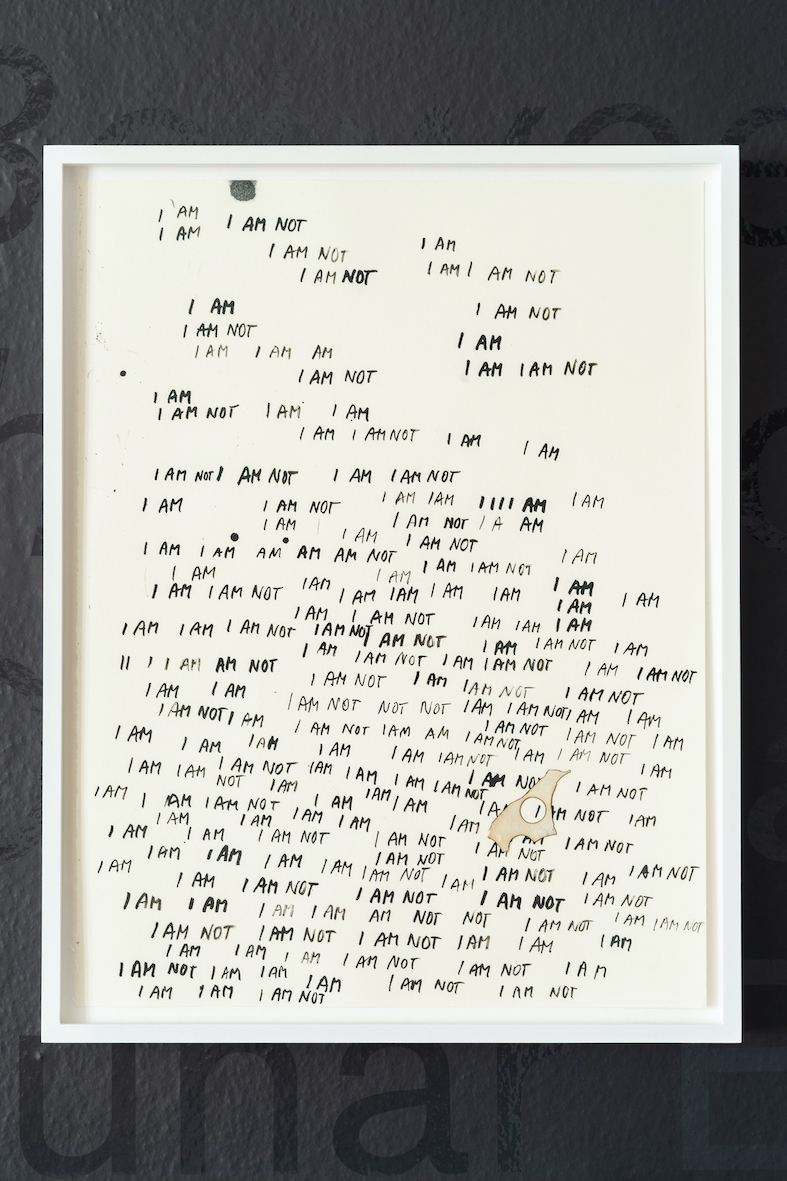 I AM
I AM I AM NOT
I AM NOT I AM
I AM NOT I AM I AM NOT
I AM I AM NOT
I AM NOT
I AM I AM AM I AM
I AM NOT I AM I AM NOT
I AM
I AM NOT I AM I AM
I AM I AM NOT I AM I AM
I AM NOT I AM NOT I AM I AM NOT
I AM I AM NOT I AM I AM I I I I AM I AM
I AM I AM NOT I A AM
I AM I AM AM AM AM NOT I AM I AM NOT I AM
I AM I AM I AM I AM NOT I AM
I AM I AM NOT I AM I AM I AM I AM I AM I AM I AM
I AM I AM I AM NOT I AM NOT I AM I AM NOT I AM I AM I AM
I AM NOT I AM I AM NOT I AM
I I I I I AM AM NOT I AM I AM NOT I AM I AM NOT I AM I AM NOT
I AM I AM I AM NOT I AM I AM NOT I AM NOT
I AM NOT I AM I AM NOT NOT NOT I AM I AM NOT I AM I AM
I AM I AM I AM I AM NOT I AM AM I AM NOT I AM NOT I AM NOT I AM
I AM I AM I AM NOT I AM I AM NOT
I AM I AM I AM NOT I AM I AM I AM I AM NOT I AM NOT I AM NOT I AM
NOT I AM
I AM I AM I AM NOT I AM I AM I AM I AM NOT I AM
I AM I AM I AM I AM I AM
I AM I AM I AM NOT I AM NOT I AM NOT I AM NOT
I AM I AM I AM I AM I AM NOT I AM NOT I AM I AM NOT
I AM I AM I AM NOT I AM NOT I AM I AM NOT I AM NOT
I AM I AM I AM I AM AM NOT NOT I AM NOT I AM I AM NOT
I AM NOT I AM NOT I AM NOT I AM I AM I AM
I AM I AM I AM I AM NOT I AM NOT I AM
I AM NOT I AM I AM I AM I AM NOT
I AM I AM I AM NOT I AM NOT
una